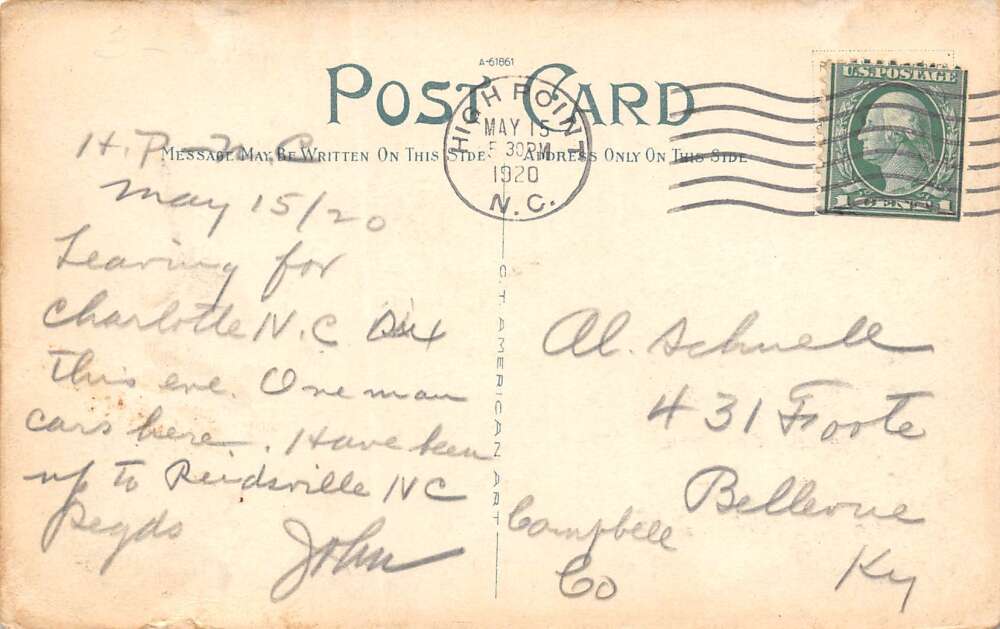 A-61861
POST CARD
MESSAGE MAY BE WRITTEN ON THIS SIDE
ADDRESS ONLY ON THIS SIDE
HIGH POINT
MAY 15
5 30 PM
1920
N.C.
U.S. POSTAGE
1 CENT 1
C.T. AMERICAN ART
H.P. N.C.
May 15/20
Leaving for
Charlotte N.C
this eve. One man
cars here. Have been
up to Reidsville NC
Regds
John
Al. Schnell
431 Foote
Bellevue
Campbell
Co
Ky